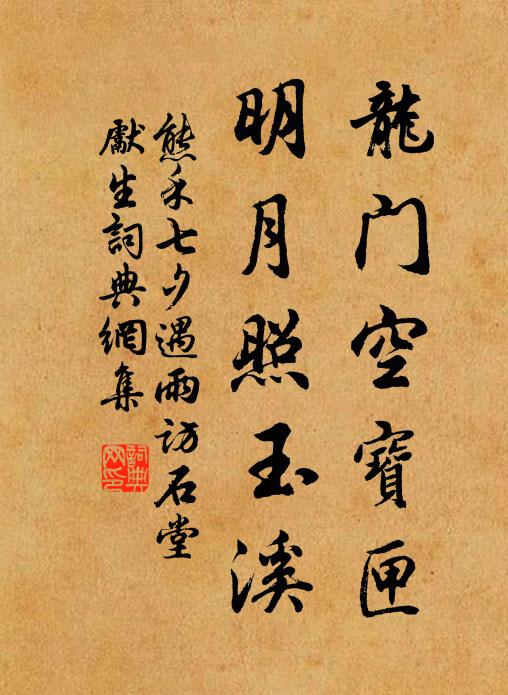 龍门空寶匣
明月照玉溪
熊禾七夕遇雨訪石堂
獻生詞典網集
詞典網印